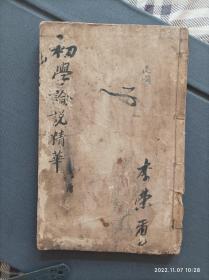 初學論說精華
李榮看
2022.11.07 10:28